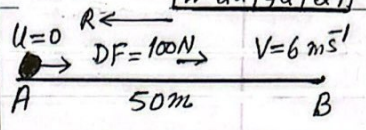 R ←
U=0
DF=100N
V=6ms⁻¹
A
50m
B